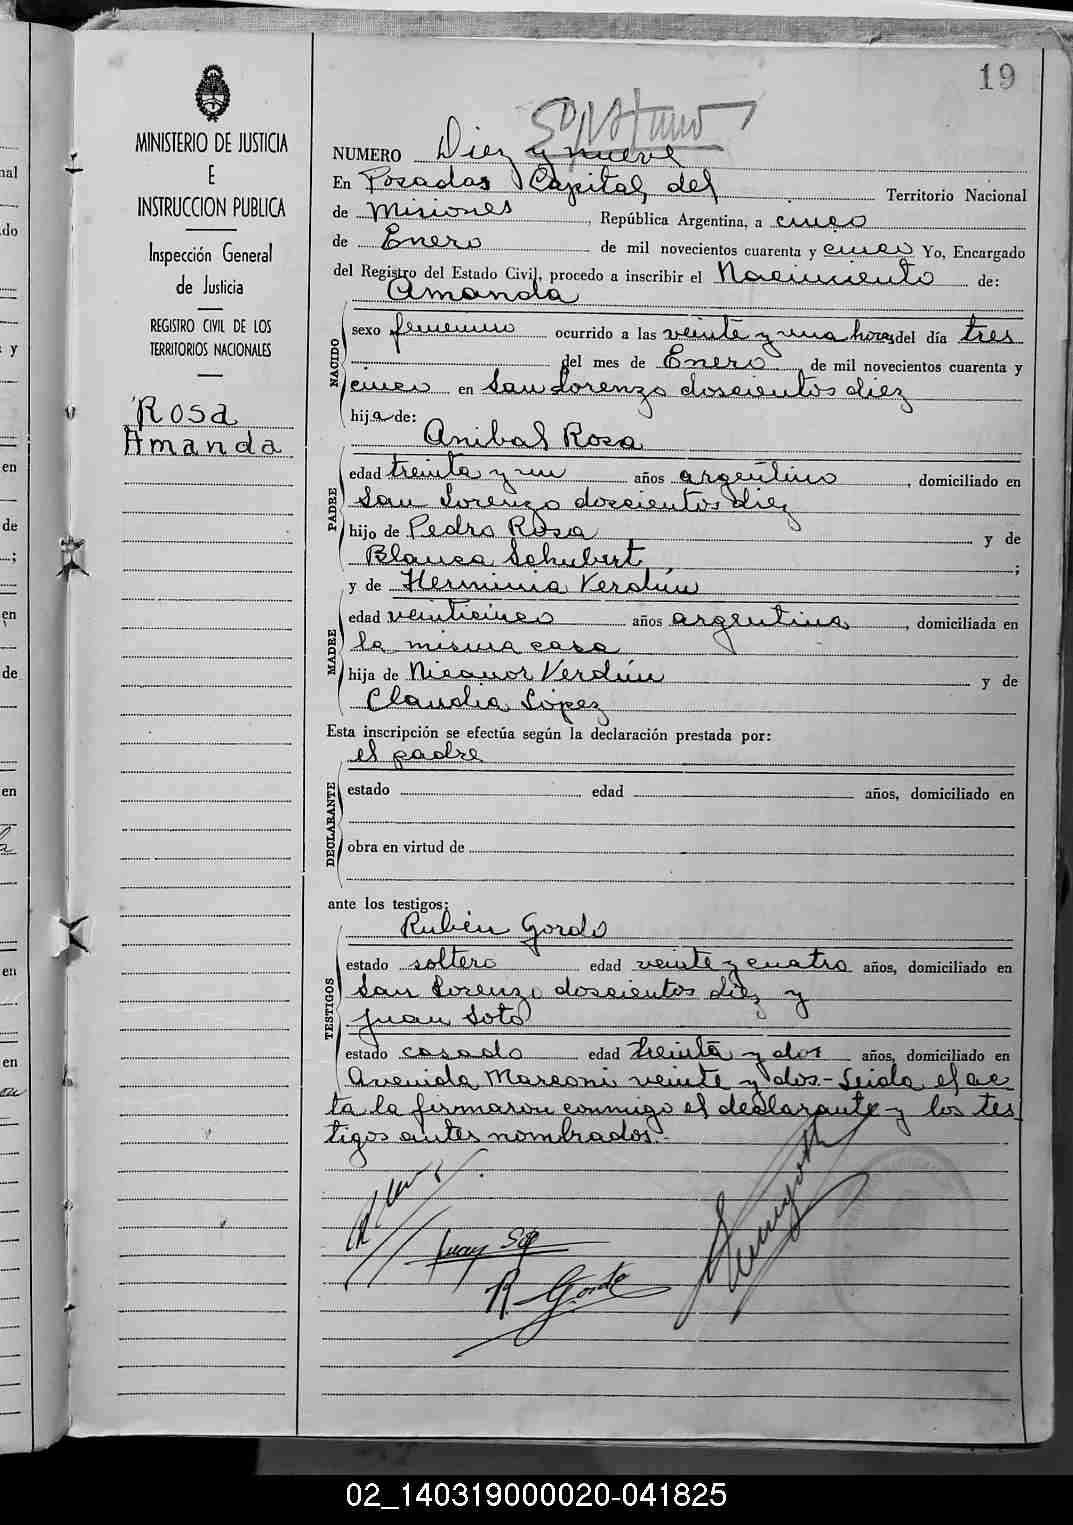 19
MINISTERIO DE JUSTICIA
E
INSTRUCCION PUBLICA
Inspección General
de Justicia
REGISTRO CIVIL DE LOS
TERRITORIOS NACIONALES
Rosa
Amanda
NUMERO Diez y nueve
En Posadas Capital del Territorio Nacional
de Misiones, República Argentina, a cinco
de Enero de mil novecientos cuarenta y cinco Yo, Encargado
del Registro del Estado Civil, procedo a inscribir el Nacimiento de:
Amanda
NACIDO
sexo femenino ocurrido a las veinte y una horas del día tres
del mes de Enero, de mil novecientos cuarenta y
cinco en San Lorenzo doscientos diez
hija de:
Anibal Rosa
PADRE
edad treinta y un años argentino, domiciliado en
San Lorenzo doscientos diez
hijo de Pedro Rosa y de
Blanca Schubert ;
y de Herminia Verdún
MADRE
edad veinticinco años argentina, domiciliada en
la misma casa
hija de Nicanor Verdún y de
Claudia López
Esta inscripción se efectúa según la declaración prestada por:
el padre
DECLARANTE
estado edad años, domiciliado en
obra en virtud de
ante los testigos:
Rubén Gordo
TESTIGOS
estado soltero edad veinte y cuatro años, domiciliado en
San Lorenzo doscientos diez y
Juan Soto
estado casado edad treinta y dos años, domiciliado en
Avenida Marconi veinte y dos.- Leida el ac-
ta la firmaron conmigo el declarante y los tes-
tigos antes nombrados.-
R. Gordo
02_140319000020-041825